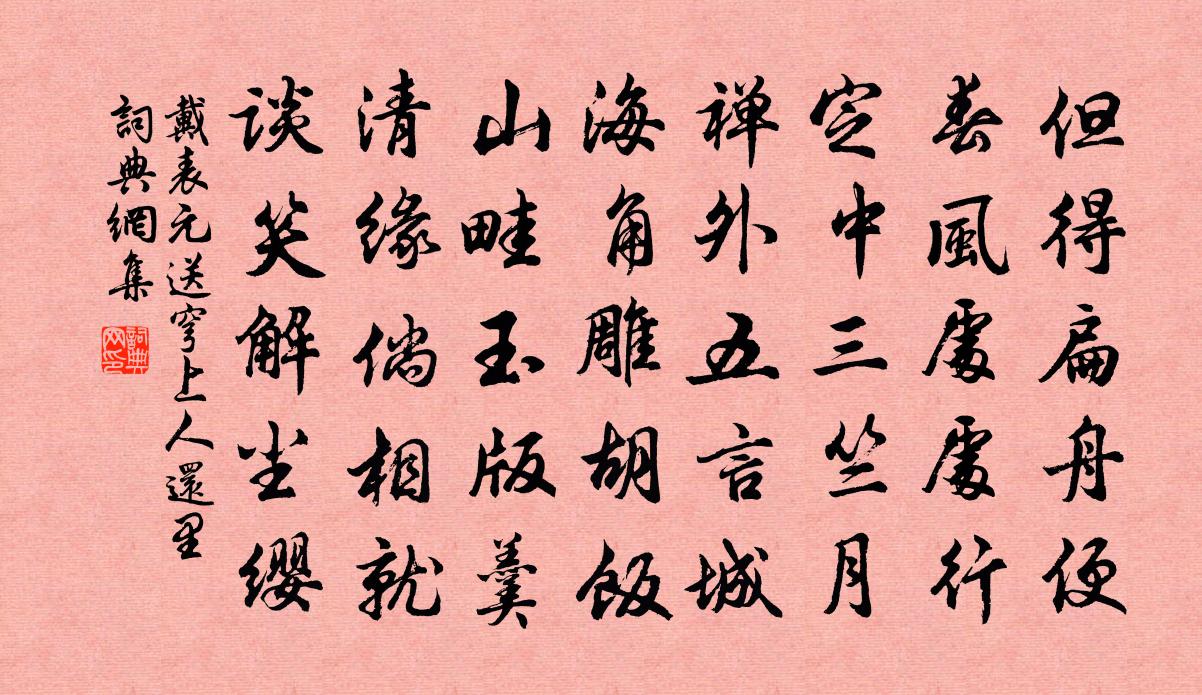 但得扁舟便
春風處處行
定中三竺月
禅外五言城
海角雕胡飯
山畦玉版羹
清緣倘相就
談笑解尘纓
戴表元送穹上人還里
詞典網集
詞典网印